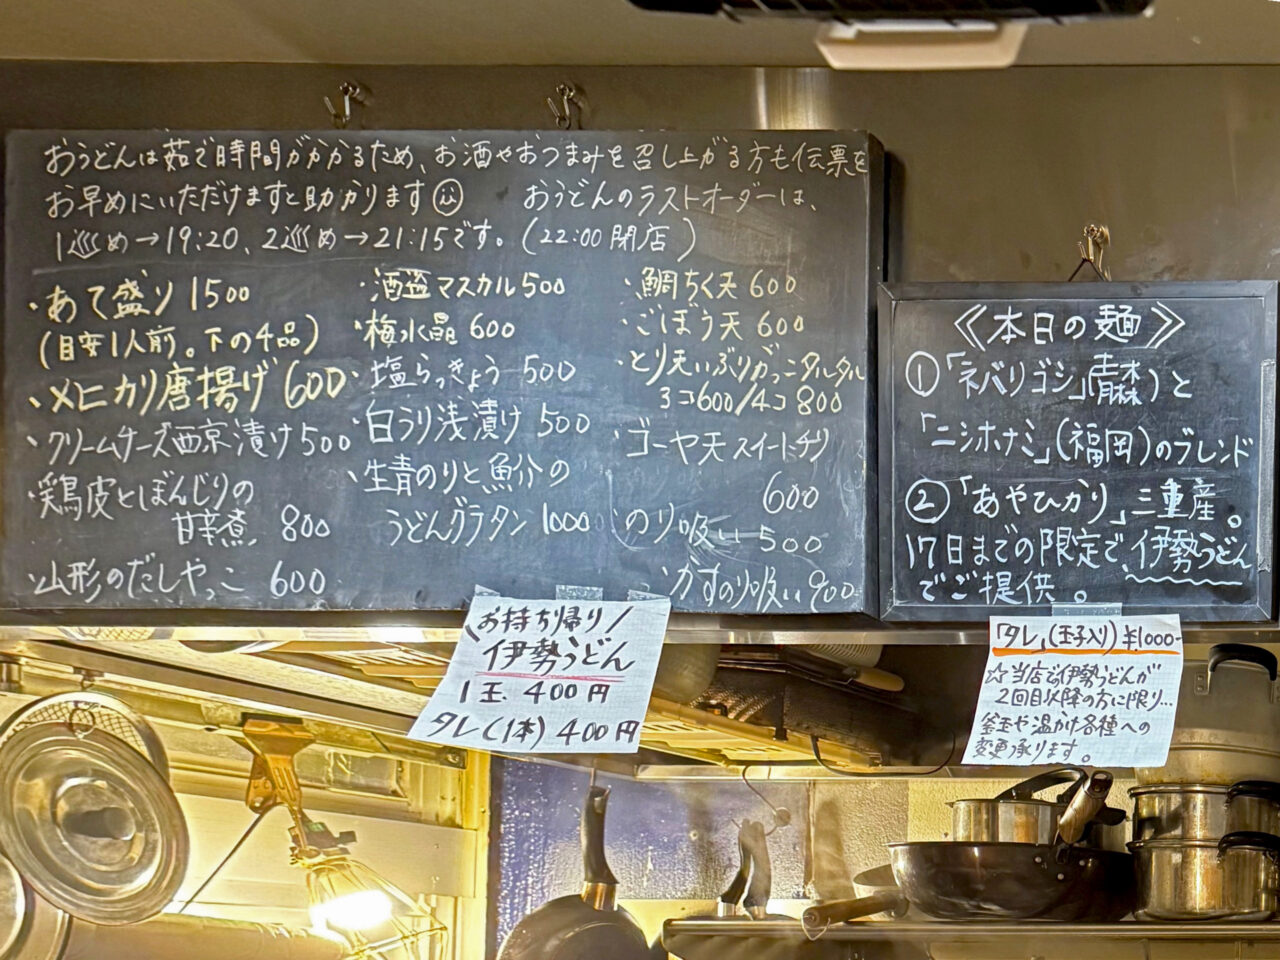 おうどんは茹で時間がかかるため、お酒やおつまみを召し上がる方も伝票を
お早めにいただけますと助かります おうどんのラストオーダーは、
1巡め→19:20、2巡め→21:15です。(22:00閉店)
・あて盛り 1500
(目安1人前。下の4品)
・メヒカリ唐揚げ 600
・クリームチーズ西京漬け 500
・鶏皮とぼんじりの
甘辛煮 800
・山形のだしやっこ 600
・酒盗マスカル 500
・梅水晶 600
・塩らっきょう 500
・白うり浅漬け 500
・生青のりと魚介の
うどんグラタン 1000
・鯛ちく天 600
・ごぼう天 600
・とり天いぶりがっこタルタル
3コ600/4コ800
・ゴーヤ天スイートチリ
600
・のり吸い 500
・かすのり吸い 900
《本日の麺》
①「ネバリゴシ」(青森)と
「ニシホナミ」(福岡)のブレンド
②「あやひかり」三重産。
17日までの限定で、伊勢うどん
でご提供。
\お持ち帰り/
伊勢うどん
1玉、400円
タレ(1本)400円
「タレ」(玉子入り)¥1000-
☆当店で伊勢うどんが
2回目以降の方に限り…
釜玉や温かけ各種への
変更承ります。